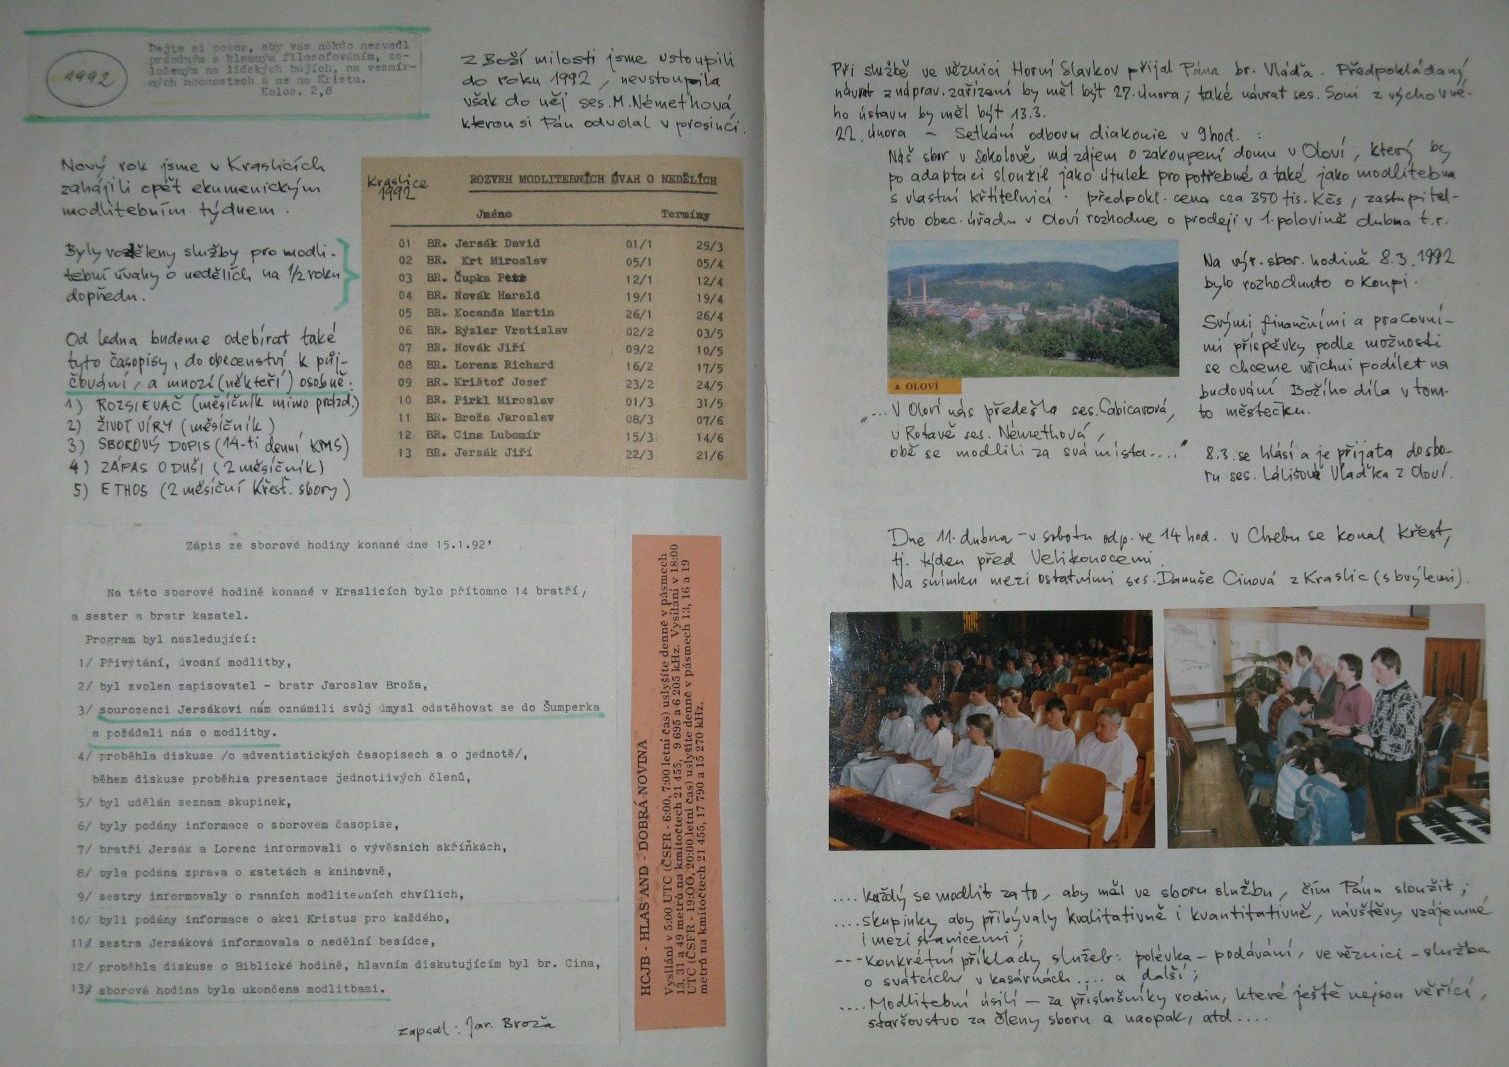 1992
Dejte si pozor, aby vás někdo nesvedl
prázdným a klamným filosofováním, za-
loženým na lidských bájích, na vesmír-
ných mocnostech a ne na Kristu.
Kolos. 2,8
Z Boží milosti jsme vstoupili
do roku 1992, nevstoupila
však do něj ses. M. Némethová
kterou si Pán odvolal v prosinci.
Nový rok jsme v Kraslicích
zahájili opět ekumenickým
modlitebním týdnem.
Byly rozděleny služby pro modli-
tební úvahy o nedělích na 1/2 roku
dopředu.
Od ledna budeme odebírat také
tyto časopisy, do obecenství k půj-
čování, a mnozí (někteří) osobně:
1) ROZSIEVAČ (měsíčník mimo prázd.)
2) ŽIVOT VÍRY (měsíčník)
3) SBOROVÝ DOPIS (14-ti denní KMS)
4) ZÁPAS O DUŠI (2 měsíčník)
5) ETHOS (2 měsíční Křesť. sbory)
Kraslice
1992
ROZVRH MODLITEBNÍCH ÚVAH O NEDĚLÍCH
Jméno Termíny
01 BR. Jersák David 01/1 29/3
02 BR. Krt Miroslav 05/1 05/4
03 BR. Čupka Petr 12/1 12/4
04 BR. Novák Harald 19/1 19/4
05 BR. Kocanda Martin 26/1 26/4
06 BR. Rýzler Vratislav 02/2 03/5
07 BR. Novák Jiří 09/2 10/5
08 BR. Lorenz Richard 16/2 17/5
09 BR. Krištof Josef 23/2 24/5
10 BR. Pirkl Miroslav 01/3 31/5
11 BR. Broža Jaroslav 08/3 07/6
12 BR. Cina Lubomír 15/3 14/6
13 BR. Jersák Jiří 22/3 21/6
Zápis ze sborové hodiny konané dne 15.1.92'
Na této sborové hodině konané v Kraslicích bylo přítomno 14 bratří,
a sester a bratr kazatel.
Program byl následující:
1/ Přivýtání, úvodní modlitby,
2/ byl zvolen zapisovatel - bratr Jaroslav Broža,
3/ sourozenci Jersákovi nám oznámili svůj úmysl odstěhovat se do Šumperka
a požádali nás o modlitby.
4/ proběhla diskuse /o adventistických časopisech a o jednotě/,
během diskuse proběhla presentace jednotlivých členů,
5/ byl udělán seznam skupinek,
6/ byly podány informace o sborovém časopise,
7/ bratři Jersák a Lorenc informovali o vývěsních skříňkách,
8/ byla podána zpráva o kazetách a knihovně,
9/ sestry informovaly o ranních modlitebních chvílích,
10/ byli podány informace o akci Kristus pro každého,
11/ sestra Jersáková informovala o nedělní besídce,
12/ proběhla diskuse o Biblické hodině, hlavním diskutujícím byl br. Cina,
13/ sborová hodina byla ukončena modlitbami.
zapsal: Jar. Broža
HCJB - HLAS AND - DOBRÁ NOVINA
Vysílání v 5:00 UTC (ČSFR - 6:00, 7:00 letní čas) uslyšíte denně v pásmech
13, 31 a 49 metrů na kmitočtech 21 455, 9 695 a 6 205 kHz. Vysílání v 18:00
UTC (ČSFR - 19:00, 20:00 letní čas) uslyšíte denně v pásmech 13, 16 a 19
metrů na kmitočtech 21 455, 17 790 a 15 270 kHz.
Při službě ve věznici Horní Slavkov přijal Pána br. Vláďa. Předpokládaný
návrat z náprav. zařízení by měl být 27. února; také návrat ses. Soni z výchovné-
ho ústavu by měl být 13.3.
22. února - Setkání odboru diakonie v 9 hod. :
Náš sbor v Sokolově má zájem o zakoupení domu v Oloví, který by
po adaptaci sloužil jako útulek pro potřebné a také jako modlitebna
s vlastní křtitelnicí. předpokl. cena cca 350 tis. Kčs, zastupitel-
stvo obec. úřadu v Oloví rozhodne o prodeji v 1. polovině dubna t.r.
▲ OLOVÍ
Na výr. sbor. hodině 8.3.1992
bylo rozhodnuto o koupi.
Svými finančními a pracovní-
mi příspěvky podle možnosti
se chceme všichni podílet na
budování Božího díla v tom-
to městečku.
„... V Oloví nás předešla ses. Cabicarová,
v Rotavě ses. Némethová,
obě se modlili za svá místa...."
8.3. se hlásí a je přijata do sbo-
ru ses. Lálišová Vlaďka z Oloví.
Dne 11. dubna - v sobotu odp. ve 14 hod. v Chebu se konal křest,
tj. týden před Velikonocemi.
Na snímku mezi ostatními ses. Danuše Cinová z Kraslic (s brýlemi).
.... každý se modlit za to, aby měl ve sboru službu, čím Pánu sloužit;
.... skupinky aby přibývaly kvalitativně i kvantitativně, návštěvy vzájemné
i mezi stanicemi;
--- konkrétní příklady služeb: polévka - podávání, ve věznici - služba
o svátcích v kasárnách.... a další;
.... Modlitební úsilí - za příslušníky rodin, které ještě nejsou věřící,
staršovstvo za členy sboru a naopak, atd....